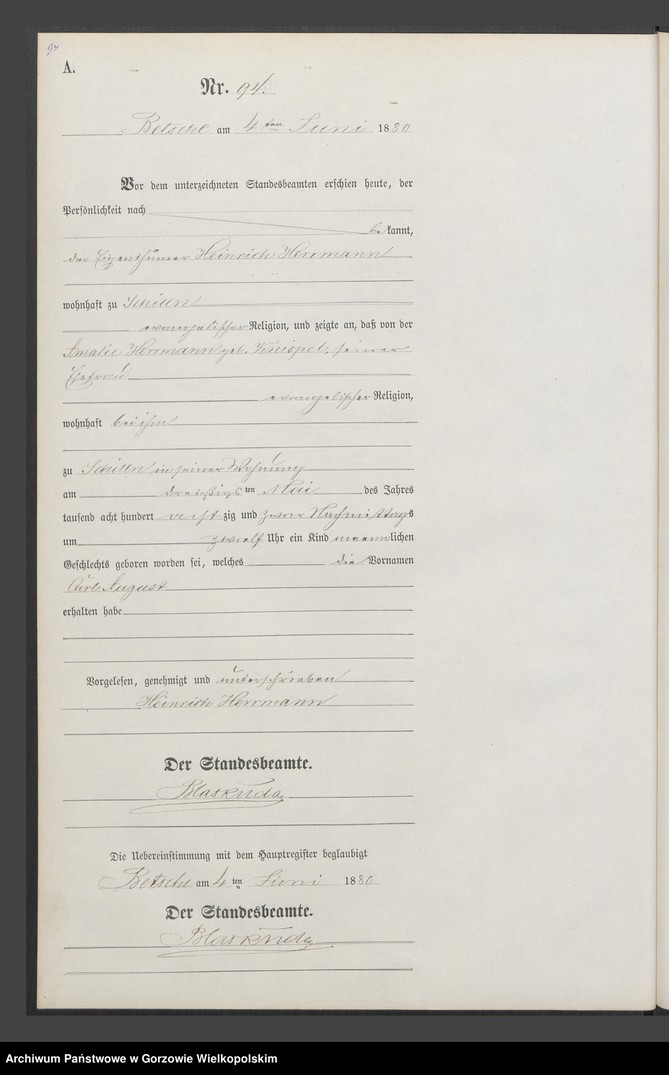 94
A.
Nr. 94.
Betsche am 4ten Juni 1880
Vor dem unterzeichneten Standesbeamten erschien heute, der
Persönlichkeit nach
be kannt,
der Eigenthümer Heinrich Herrmann
wohnhaft zu
evangelischer Religion, und zeigte an, daß von der
Amalie Herrmann geb. Knispel, seiner
Ehefrau
evangelischer Religion,
wohnhaft bei ihm
zu in seiner Wohnung
am dreißigsten Mai des Jahres
tausend acht hundert achtzig und zwar Nachmittags
um zwoelf Uhr ein Kind maennlichen
Geschlechts geboren worden sei, welches die Vornamen
Carl August
erhalten habe
Vorgelesen, genehmigt und unterschrieben
Heinrich Herrmann
Der Standesbeamte.
Blaskuda
Die Uebereinstimmung mit dem Hauptregister beglaubigt
Betsche am 4ten Juni 1880
Der Standesbeamte.
Blaskuda
Archiwum Państwowe w Gorzowie Wielkopolskim